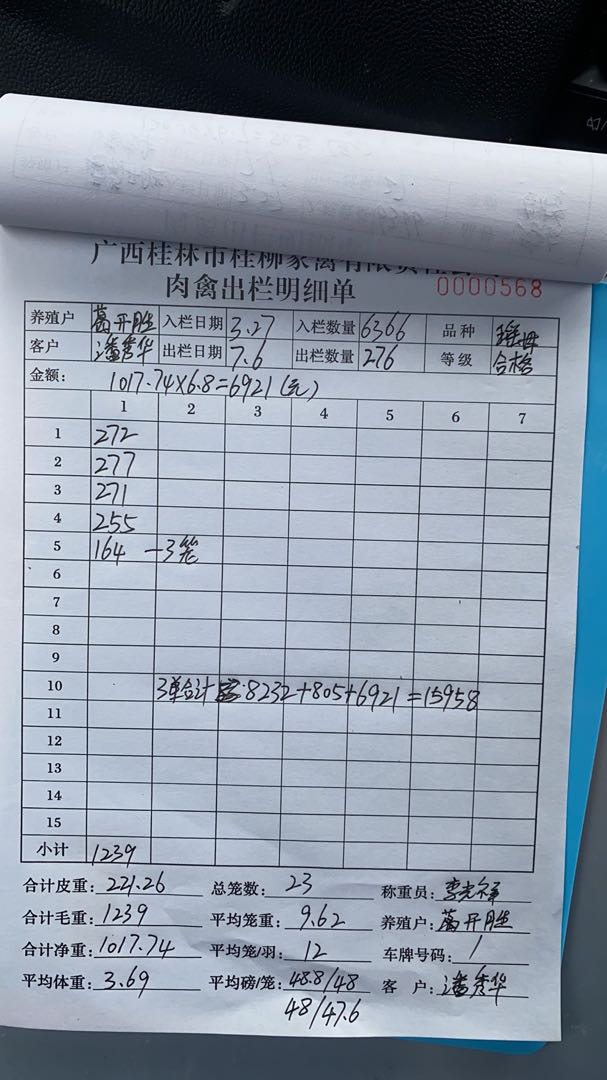 广西桂林市桂柳家禽有限责任公司
肉禽出栏明细单 0000568
养殖户 葛开胜 入栏日期 3.27 入栏数量 6366 品种
客户 潘秀华 出栏日期 7.6 出栏数量 276 等级 合格
金额: 1017.74×6.8=6921(元)
1 2 3 4 5 6 7
1 272
2 277
3 271
4 255
5 164 —3笼
6
7
8
9
10 3单合计 8232+805+6921=15958
11
12
13
14
15
小计 1239
合计皮重: 221.26 总笼数: 23 称重员: 李光祥
合计毛重: 1239 平均笼重: 9.62 养殖户: 葛开胜
合计净重: 1017.74 平均笼/羽: 12 车牌号码: /
平均体重: 3.69 平均磅/笼: 48.8/48 客户: 潘秀华
48/47.6